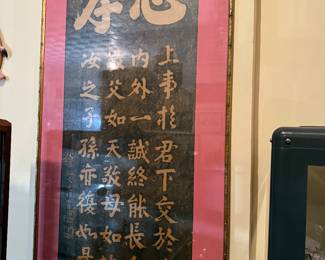 上事於君下交於
内外一誠終能長
敬父如天敬母如
汝之子孫亦復如是